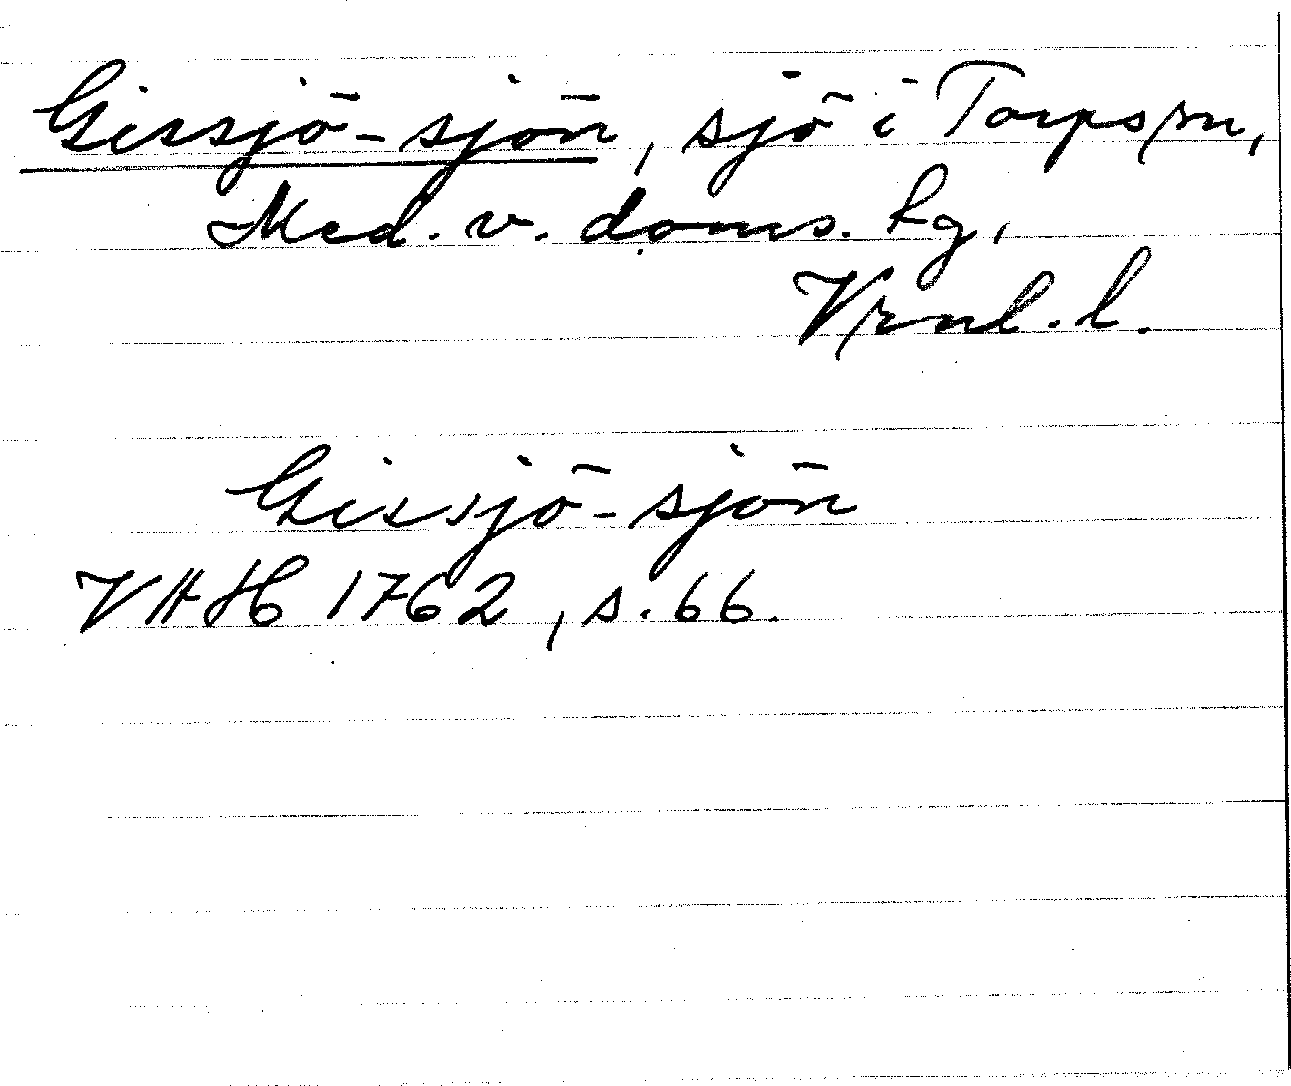 Gissjö-sjön, sjö i Torps sn,
Med. v. doms.
Vrnl. l.
Gissjö-sjön
VHH 1762, s. 66.